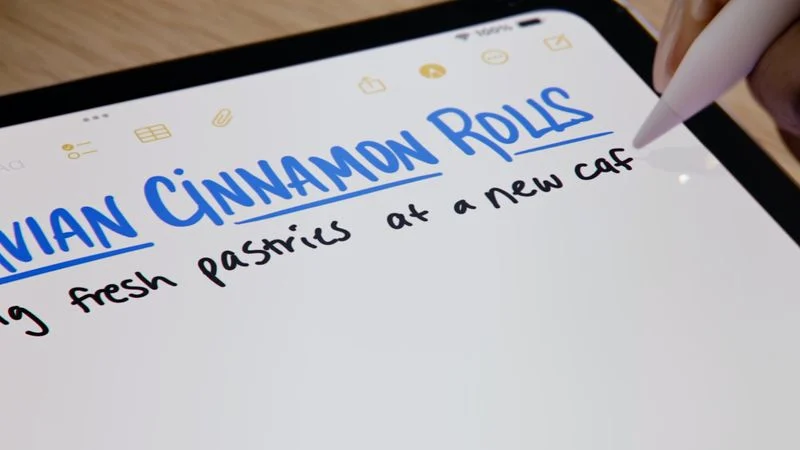 100%
Aa
VIAN CINNAMON ROLLS
ng fresh pastries at a new caf